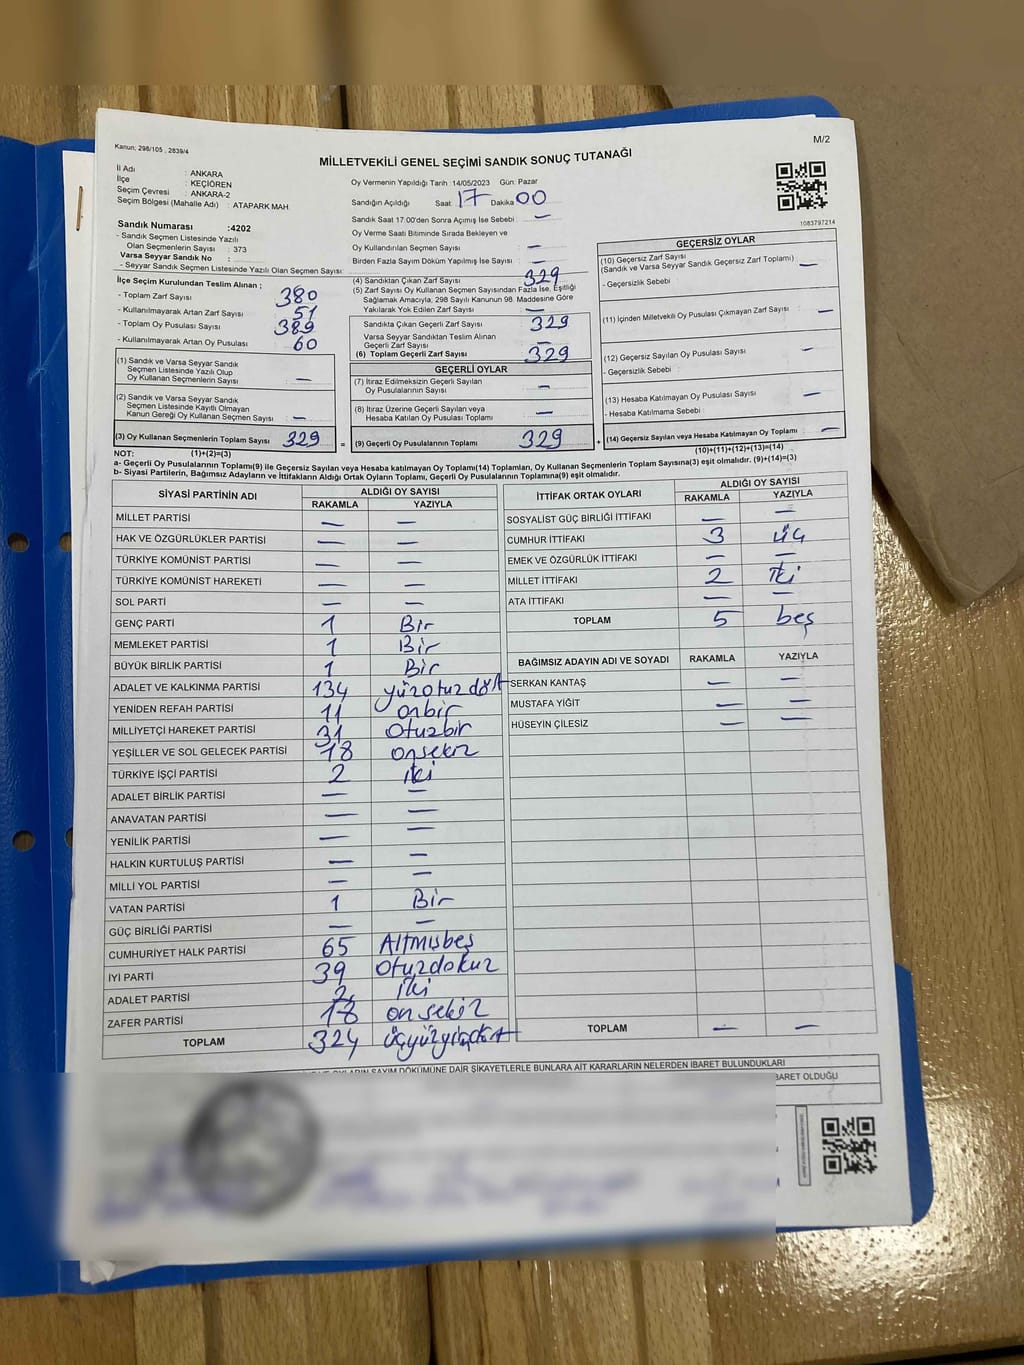 Kanun; 298/105 , 2839/4
M/2
MİLLETVEKİLİ GENEL SEÇİMİ SANDIK SONUÇ TUTANAĞI
İl Adı : ANKARA
İlçe : KEÇİÖREN
Seçim Çevresi : ANKARA-2
Seçim Bölgesi (Mahalle Adı) : ATAPARK MAH.
Oy Vermenin Yapıldığı Tarih :14/05/2023 Gün: Pazar
Sandığın Açıldığı Saat: 17 Dakika 00
Sandık Saat 17.00'den Sonra Açılmış İse Sebebi : —
Oy Verme Saati Bitiminde Sırada Bekleyen ve
Oy Kullandırılan Seçmen Sayısı : —
Birden Fazla Sayım Döküm Yapılmış İse Sayısı : —
1083797214
Sandık Numarası :4202
- Sandık Seçmen Listesinde Yazılı
Olan Seçmenlerin Sayısı : 373
Varsa Seyyar Sandık No :
- Seyyar Sandık Seçmen Listesinde Yazılı Olan Seçmen Sayısı:
İlçe Seçim Kurulundan Teslim Alınan ;
- Toplam Zarf Sayısı : 380
- Kullanılmayarak Artan Zarf Sayısı : 51
- Toplam Oy Pusulası Sayısı : 389
- Kullanılmayarak Artan Oy Pusulası : 60
(1) Sandık ve Varsa Seyyar Sandık
Seçmen Listesinde Yazılı Olup
Oy Kullanan Seçmenlerin Sayısı : —
(2) Sandık ve Varsa Seyyar Sandık
Seçmen Listesinde Kayıtlı Olmayan
Kanun Gereği Oy Kullanan Seçmen Sayısı : —
(3) Oy Kullanan Seçmenlerin Toplam Sayısı : 329 =
(4) Sandıktan Çıkan Zarf Sayısı : 329
(5) Zarf Sayısı Oy Kullanan Seçmen Sayısından Fazla İse, Eşitliği
Sağlamak Amacıyla, 298 Sayılı Kanunun 98. Maddesine Göre
Yakılarak Yok Edilen Zarf Sayısı : —
Sandıkta Çıkan Geçerli Zarf Sayısı : 329
Varsa Seyyar Sandıktan Teslim Alınan
Geçerli Zarf Sayısı : —
(6) Toplam Geçerli Zarf Sayısı : 329
GEÇERLİ OYLAR
(7) İtiraz Edilmeksizin Geçerli Sayılan
Oy Pusulalarının Sayısı : —
(8) İtiraz Üzerine Geçerli Sayılan veya
Hesaba Katılan Oy Pusulası Toplamı : —
(9) Geçerli Oy Pusulalarının Toplamı : 329 +
GEÇERSİZ OYLAR
(10) Geçersiz Zarf Sayısı
(Sandık ve Varsa Seyyar Sandık Geçersiz Zarf Toplamı) : —
- Geçersizlik Sebebi :
(11) İçinden Milletvekili Oy Pusulası Çıkmayan Zarf Sayısı : —
(12) Geçersiz Sayılan Oy Pusulası Sayısı : —
- Geçersizlik Sebebi :
(13) Hesaba Katılmayan Oy Pusulası Sayısı : —
- Hesaba Katılmama Sebebi :
(14) Geçersiz Sayılan veya Hesaba Katılmayan Oy Toplamı : —
NOT: (1)+(2)=(3)
(10)+(11)+(12)+(13)=(14)
a- Geçerli Oy Pusulalarının Toplamı(9) ile Geçersiz Sayılan veya Hesaba katılmayan Oy Toplamı(14) Toplamları, Oy Kullanan Seçmenlerin Toplam Sayısına(3) eşit olmalıdır. (9)+(14)=(3)
b- Siyasi Partilerin, Bağımsız Adayların ve İttifakların Aldığı Ortak Oyların Toplamı, Geçerli Oy Pusulalarının Toplamına(9) eşit olmalıdır.
SİYASİ PARTİNİN ADI ALDIĞI OY SAYISI
RAKAMLA YAZIYLA
MİLLET PARTİSİ — —
HAK VE ÖZGÜRLÜKLER PARTİSİ — —
TÜRKİYE KOMÜNİST PARTİSİ — —
TÜRKİYE KOMÜNİST HAREKETİ — —
SOL PARTİ — —
GENÇ PARTİ 1 Bir
MEMLEKET PARTİSİ 1 Bir
BÜYÜK BİRLİK PARTİSİ 1 Bir
ADALET VE KALKINMA PARTİSİ 134 yüzotuzdört
YENİDEN REFAH PARTİSİ 11 onbir
MİLLİYETÇİ HAREKET PARTİSİ 31 Otuzbir
YEŞİLLER VE SOL GELECEK PARTİSİ 18 onsekiz
TÜRKİYE İŞÇİ PARTİSİ 2 iki
ADALET BİRLİK PARTİSİ — —
ANAVATAN PARTİSİ — —
YENİLİK PARTİSİ — —
HALKIN KURTULUŞ PARTİSİ — —
MİLLİ YOL PARTİSİ — —
VATAN PARTİSİ 1 Bir
GÜÇ BİRLİĞİ PARTİSİ — —
CUMHURİYET HALK PARTİSİ 65 Altmışbeş
İYİ PARTİ 39 otuzdokuz
ADALET PARTİSİ 2 iki
ZAFER PARTİSİ 18 onsekiz
TOPLAM 324 üçyüzyirmidört
İTTİFAK ORTAK OYLARI ALDIĞI OY SAYISI
RAKAMLA YAZIYLA
SOSYALİST GÜÇ BİRLİĞİ İTTİFAKI — —
CUMHUR İTTİFAKI 3 üç
EMEK VE ÖZGÜRLÜK İTTİFAKI — —
MİLLET İTTİFAKI 2 iki
ATA İTTİFAKI — —
TOPLAM 5 beş
BAĞIMSIZ ADAYIN ADI VE SOYADI RAKAMLA YAZIYLA
SERKAN KANTAŞ — —
MUSTAFA YİĞİT — —
HÜSEYİN ÇİLESİZ — —
TOPLAM — —
OYLARIN SAYIM DÖKÜMÜNE DAİR ŞİKAYETLERLE BUNLARA AİT KARARLARIN NELERDEN İBARET BULUNDUKLARI
BARET OLDUĞU